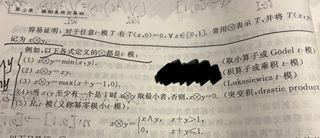 第2章 模糊集理论基础
容易证明: 对于任意t-模T有T(x,0)=0,∀x∈[0,1]. 常用⊗表示T,并将T(x,y)
记为x⊗y.
例如,以下各式定义的⊗都是t-模:
(1) x⊗y=min(x,y). (取小算子或 Godel t-模)
(2) x⊗y=xy. (积算子或乘积 t-模)
(3) x⊗y=max(x+y-1,0). (Lukasiewicz t-模)
(4) 当x,y至少有一个是1时x⊗y取最小者,否则,x⊗y=0. (突变积,drastic product)
(5) R₀t-模(又称幂零极小t-模).
x⊗y={x∧y, x+y>1,
0, x+y≤1.